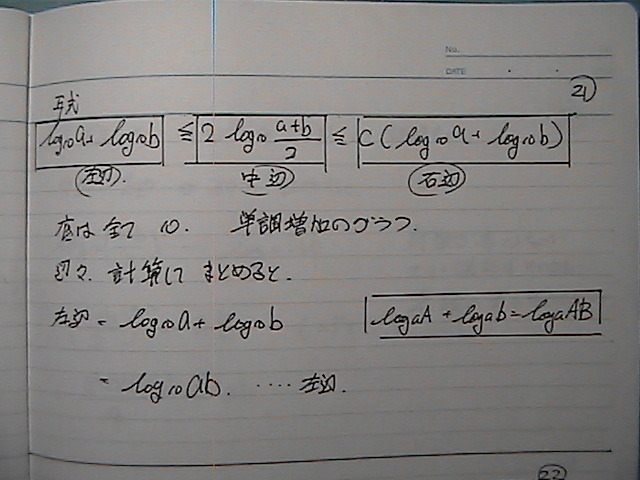 No.
DATE
21
与式
log₁₀a + log₁₀b ≦ 2 log₁₀ (a+b)/2 ≦ C (log₁₀a + log₁₀b)
左辺. 中辺 右辺
底は全て 10. 単調増加のグラフ.
辺々、計算して まとめると.
左辺 = log₁₀a + log₁₀b logaA + logab = logaAB
= log₁₀ab. ‥‥ 左辺.
22